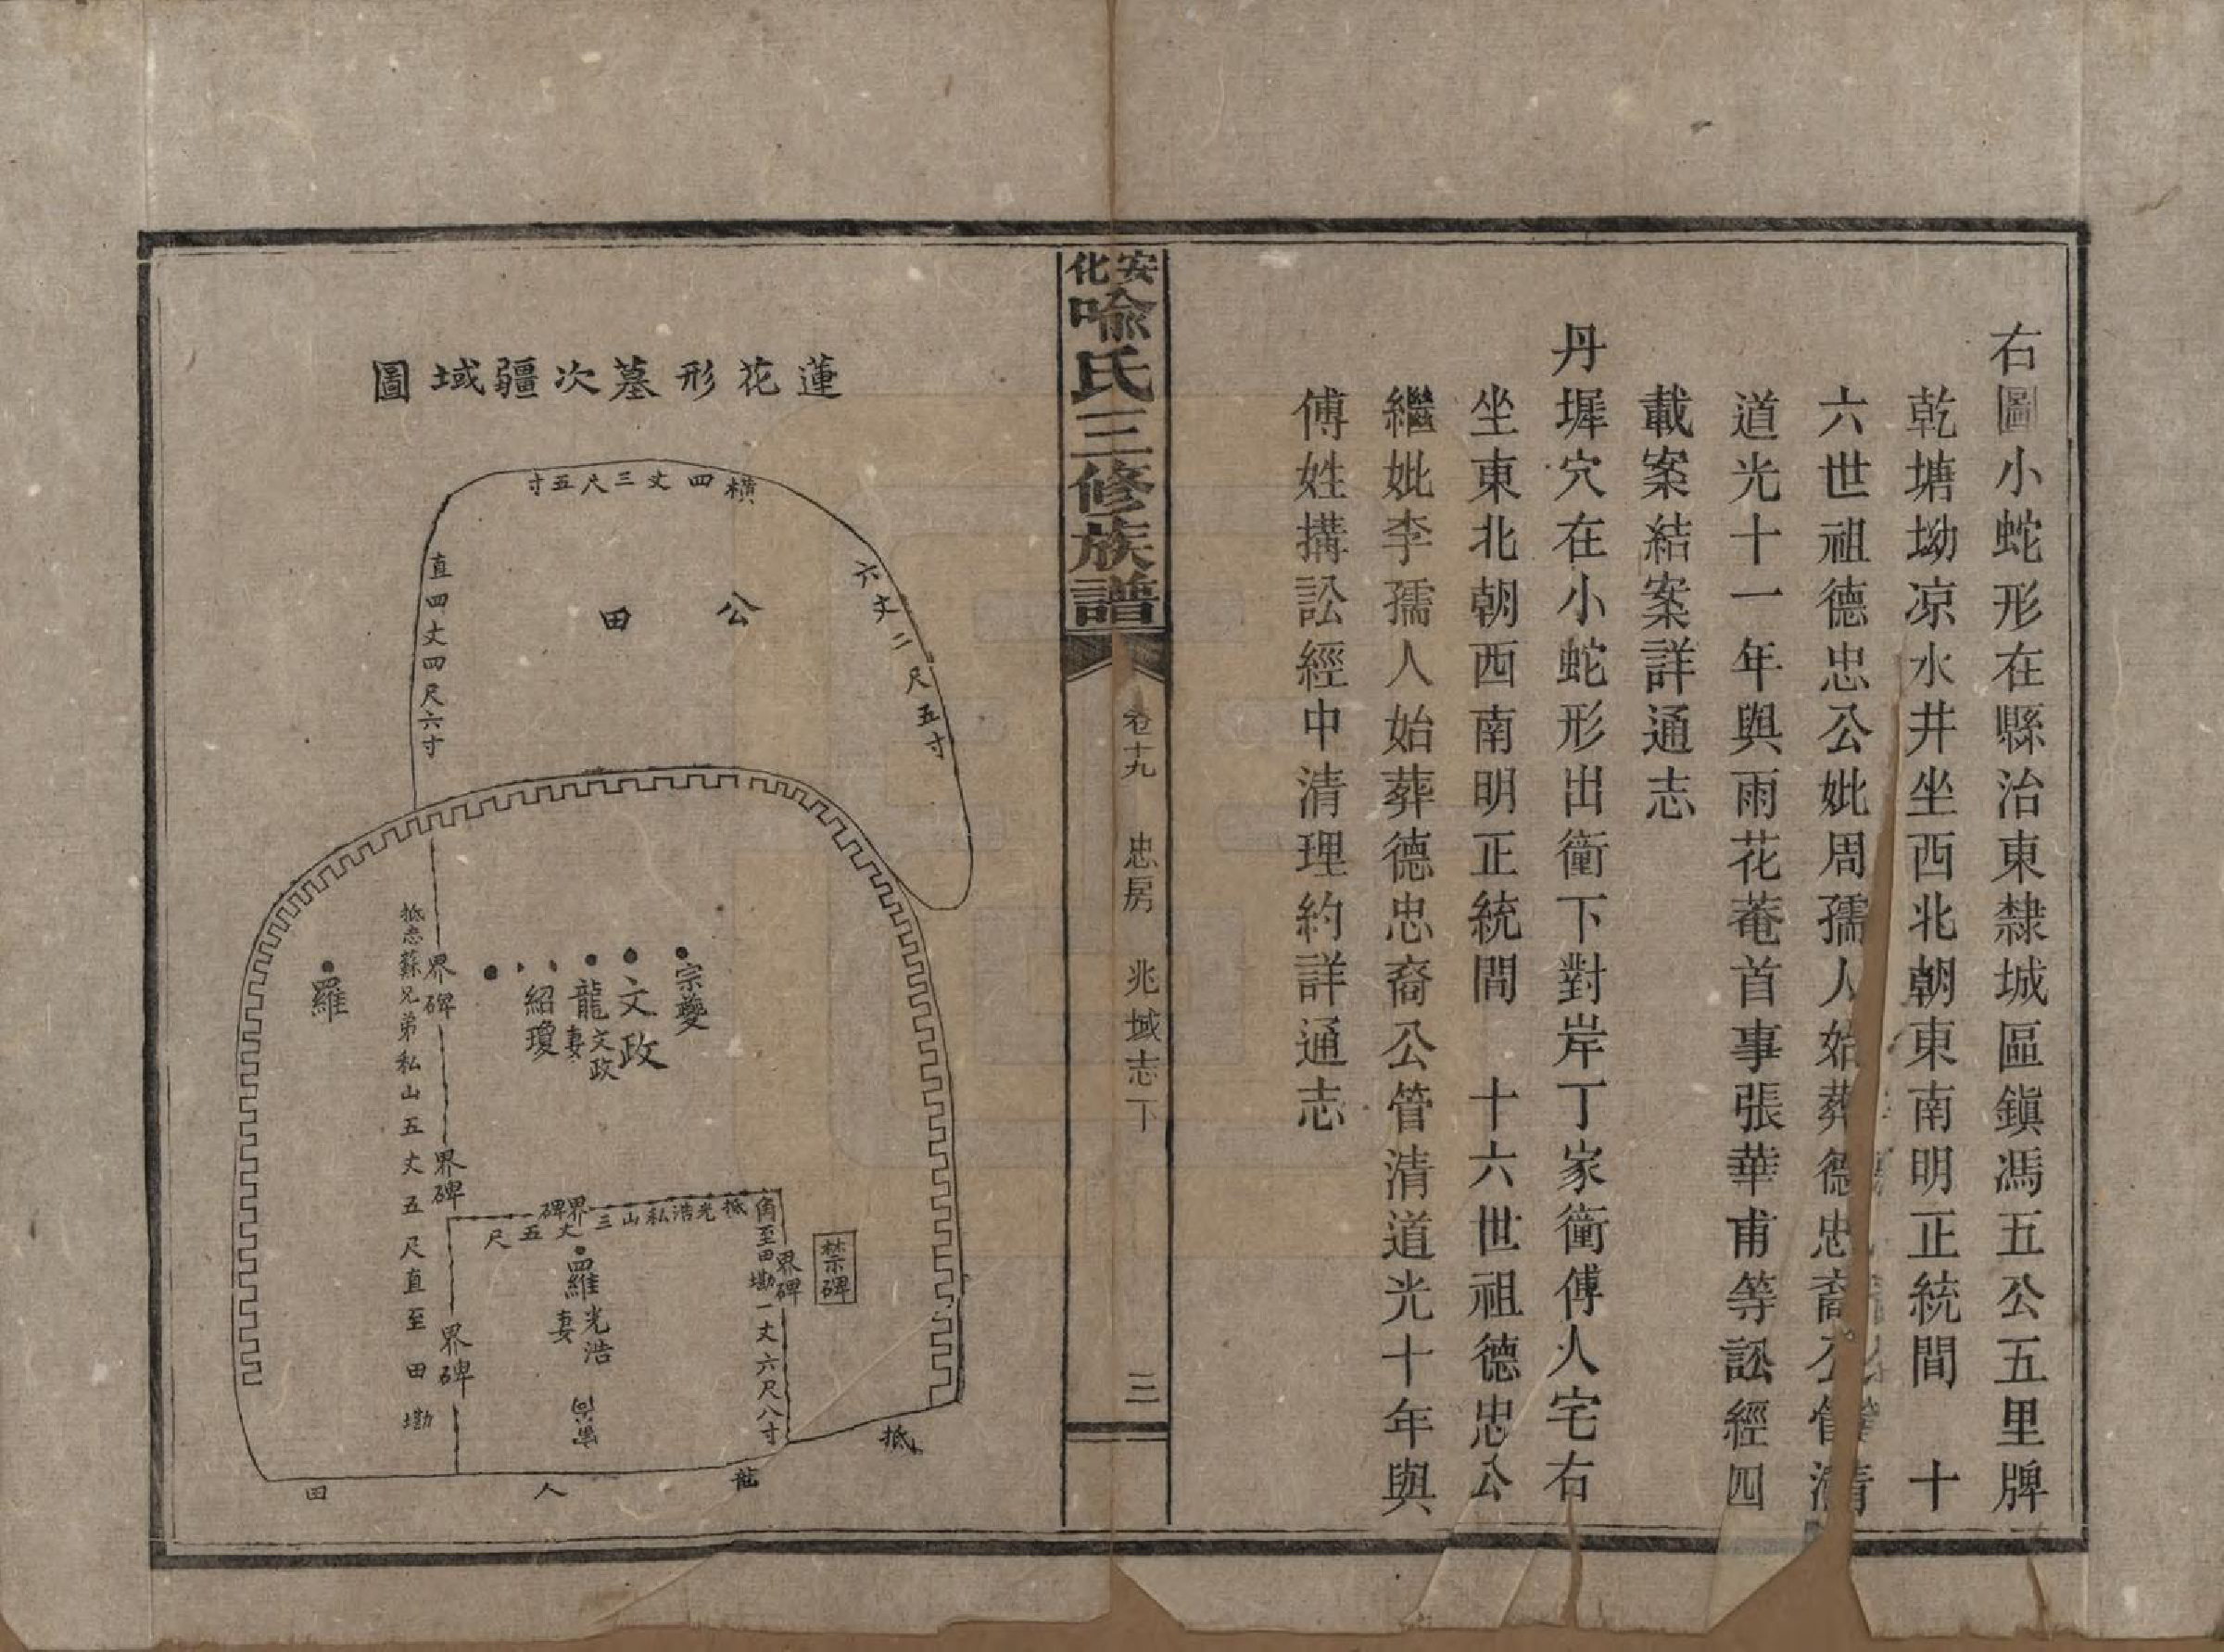 右圖小蛇形在縣治東隸城區鎮馮五公五里牌
乾塘坳凉水井坐西北朝東南明正統間　十
六世祖德忠公妣周孺人始葬德忠裔公管清
道光十一年與雨花菴首事張華甫等訟經四
載案結案詳通志
丹墀穴在小蛇形出衝下對岸丁家衝傅人宅右
坐東北朝西南明正統間　十六世祖德忠公
繼妣李孺人始葬德忠裔公管清道光十年與
傅姓搆訟經中清理約詳通志
安化喻氏三修族譜
卷十九　忠房　兆域志下
三
蓮花形墓次疆域圖
橫四丈三尺五寸
六丈二尺五寸
直四丈四尺六寸
公田
宗夔
文政
文政妻龍
紹瓊
羅
界碑
界碑
界碑
抵悫蘇兄弟私山五丈五尺直至田墈
抵光浩私山三丈五尺
界碑
角至田墈一丈六尺八寸
界碑
禁碑
光浩妻羅
抵龍人田